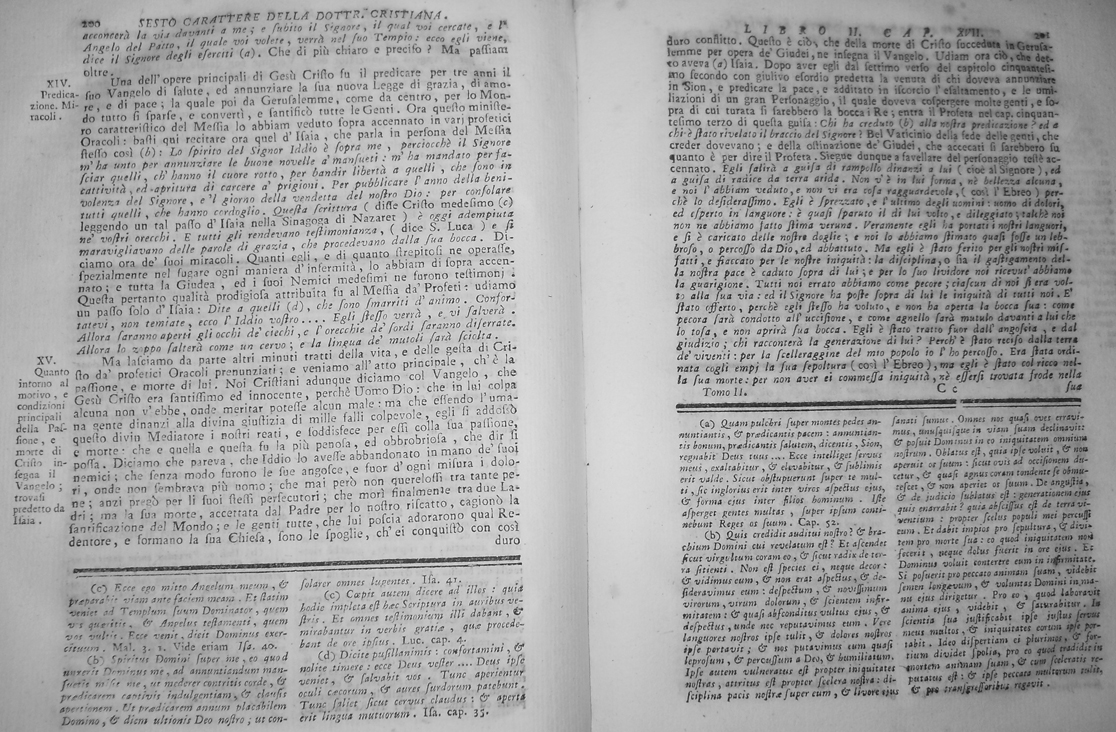 200 SESTO CARATTERE DELLA DOTTR. CRISTIANA.
acconcerà la via davanti a me; e subito il Signore, il qual voi cercate, e l'
Angelo del Patto, il quale voi volete, verrà nel suo Tempio: ecco egli viene,
dice il Signore degli eserciti (a). Che di più chiaro e preciso? Ma passiam
oltre.
XIV.
Predica-
zione. Mi-
racoli.
Una dell'opere principali di Gesù Cristo fu il predicare per tre anni il
suo Vangelo di salute, ed annunziare la sua nuova Legge di grazia, di amo-
re, e di pace; la quale poi da Gerusalemme, come da centro, per lo Mon-
do tutto si sparse, e convertì, e santificò tutte le Genti. Ora questo ministe-
ro caratteristico del Messia lo abbiam veduto sopra accennato in varj profetici
Oracoli: basti qui recitare ora quel d'Isaia, che parla in persona del Messia
stesso così (b): Lo spirito del Signor Iddio è sopra me, perciocchè il Signore
m'ha unto per annunziare le buone novelle a' mansueti: m'ha mandato per fa-
sciar quelli, ch'hanno il cuore rotto, per bandir libertà a quelli, che sono in
cattività, ed apritura di carcere a' prigioni. Per pubblicare l'anno della beni-
volenza del Signore, e 'l giorno della vendetta del nostro Dio: per consolare
tutti quelli, che hanno cordoglio. Questa scrittura (disse Cristo medesimo (c)
leggendo un tal passo d'Isaia nella Sinagoga di Nazaret) è oggi adempiuta
ne' vostri orecchi. E tutti gli rendevano testimonianza, (dice S. Luca) e si
maravigliavano delle parole di grazia, che procedevano dalla sua bocca. Di-
ciamo ora de' suoi miracoli. Quanti egli, e di quanto strepitosi ne operasse,
spezialmente nel fugare ogni maniera d'infermità, lo abbiam di sopra accen-
nato; e tutta la Giudea, ed i suoi Nemici medesimi ne furono testimonj.
Questa pertanto qualità prodigiosa attribuita fu al Messia da' Profeti: udiamo
un passo solo d'Isaia: Dite a quelli (d), che sono smarriti d'animo. Confor-
tatevi, non temiate, ecco l'Iddio vostro.... Egli stesso verrà, e vi salverà.
Allora saranno aperti gli occhi de' ciechi, e l'orecchie de' sordi saranno disserrate.
Allora lo zoppo salterà come un cervo; e la lingua de' mutoli sarà sciolta.
XV.
Quanto
intorno al
motivo, e
condizioni
principali
della Pas-
sione, e
morte di
Cristo in-
segna il
Vangelo;
trovasi
predetto da
Isaia.
Ma lasciamo da parte altri minuti tratti della vita, e delle gesta di Cri-
sto da' profetici Oracoli prenunziati; e veniamo all'atto principale, ch'è la
passione, e morte di lui. Noi Cristiani adunque diciamo col Vangelo, che
Gesù Cristo era santissimo ed innocente, perchè Uomo Dio: che in lui colpa
alcuna non v'ebbe, onde meritar potesse alcun male: ma che essendo l'uma-
na gente dinanzi alla divina giustizia di mille falli colpevole, egli si addossò
questo divin Mediatore i nostri reati, e soddisfece per essi colla sua passione,
e morte: che e quella e questa fu la più penosa, ed obbrobriosa, che dir si
possa. Diciamo che pareva, che Iddio lo avesse abbandonato in mano de' suoi
nemici; che senza modo furono le sue angosce, e fuor d'ogni misura i dolo-
ri, onde non sembrava più uomo; che mai però non querelossi tra tante pe-
ne; anzi pregò per li suoi stessi persecutori; che morì finalmente tra due La-
dri; ma la sua morte, accettata dal Padre per lo nostro riscatto, cagionò la
santificazione del Mondo; e le genti tutte, che lui poscia adorarono qual Re-
dentore, e formano la sua Chiesa, sono le spoglie, ch'ei conquistò con così
duro
(a) Ecce ego mitto Angelum meum, &
præparabit viam ante faciem meam. Et statim
veniet ad Templum suum Dominator, quem
vos quæritis, & Angelus testamenti, quem
vos vultis. Ecce venit, dicit Dominus exer-
cituum. Mal. 3. 1. Vide etiam Isa. 40.
(b) Spiritus Domini super me, eo quod
unxerit Dominus me, ad annuntiandum man-
suetis misit me, ut mederer contritis corde, &
prædicarem captivis indulgentiam, & clausis
apertionem. Ut prædicarem annum placabilem
Domino, & diem ultionis Deo nostro; ut con-
solarer omnes lugentes. Isa. 41.
(c) Cœpit autem dicere ad illos: quia
hodie impleta est hæc Scriptura in auribus ve-
stris. Et omnes testimonium illi dabant, &
mirabantur in verbis gratiæ, quæ procede-
bant de ore ipsius. Luc. cap. 4.
(d) Dicite pusillanimis: confortamini, &
nolite timere: ecce Deus vester .... Deus ipse
veniet, & salvabit vos. Tunc aperientur
oculi cæcorum, & aures surdorum patebunt.
Tunc saliet sicut cervus claudus: & aperta
erit lingua mutuorum. Isa. cap. 35.
LIBRO II. CAP. XVII. 201
duro conflitto. Questo è ciò, che della morte di Cristo succeduta in Gerusa-
lemme per opera de' Giudei, ne insegna il Vangelo. Udiam ora ciò, che det-
to aveva (a) Isaia. Dopo aver egli dal settimo verso del capitolo cinquantesi-
mo secondo con giulivo esordio predetta la venuta di chi doveva annunziare
in Sion, e predicare la pace, e additato in iscorcio l'esaltamento, e le umi-
liazioni di un gran Personaggio, il quale doveva cospergere molte genti, e so-
pra di cui turata si sarebbero la bocca i Re; entra il Profeta nel cap. cinquan-
tesimo terzo di questa guisa: Chi ha creduto (b) alla nostra predicazione? ed a
chi è stato rivelato il braccio del Signore? Bel Vaticinio della fede delle genti, che
creder dovevano; e della ostinazione de' Giudei, che accecati si sarebbero su
quanto è per dire il Profeta. Siegue dunque a favellare del personaggio testè ac-
cennato. Egli salirà a guisa di rampollo dinanzi a lui (cioè al Signore), ed
a guisa di radice da terra arida. Non v'è in lui forma, nè bellezza alcuna,
e noi l'abbiam veduto, e non vi era cosa ragguardevole, (così l'Ebreo) per-
chè lo desiderassimo. Egli è sprezzato, e l'ultimo degli uomini: uomo di dolori,
ed esperto in languore: è quasi sparuto il di lui volto, e dileggiato; talchè noi
non ne abbiamo fatto stima veruna. Veramente egli ha portati i nostri languori,
e si è caricato delle nostre doglie; e noi lo abbiamo stimato quasi fosse un leb-
broso, o percosso da Dio, ed abbattuto. Ma egli è stato ferito per gli nostri mis-
fatti, e fiaccato per le nostre iniquità: la disciplina, o sia il gastigamento del-
la nostra pace è caduto sopra di lui; e per lo suo lividore noi ricevut'abbiamo
la guarigione. Tutti noi errato abbiamo come pecore; ciascun di noi si era vol-
to alla sua via: ed il Signore ha poste sopra di lui le iniquità di tutti noi. E'
stato offerto, perchè egli stesso ha voluto, e non ha aperta la bocca sua: come
pecora sarà condotto all'uccisione, e come agnello sarà mutolo davanti a lui che
lo tosa, e non aprirà sua bocca. Egli è stato tratto fuor dall'angoscia, e dal
giudizio; chi racconterà la generazione di lui? Perch'è stato reciso dalla terra
de' viventi: per la scelleraggine del mio popolo io l'ho percosso. Era stata ordi-
nata cogli empj la sua sepoltura (così l'Ebreo), ma egli è stato col ricco nel-
la sua morte: per non aver ei commessa iniquità, nè essersi trovata frode nella
Tomo II. C c sua
(a) Quam pulchri super montes pedes an-
nuntiantis, & prædicantis pacem: annuntian-
tis bonum, prædicantis salutem, dicentis, Sion,
regnabit Deus tuus.... Ecce intelliget servus
meus, exaltabitur, & elevabitur, & sublimis
erit valde. Sicut obstupuerunt super te mul-
ti, sic inglorius erit inter viros aspectus ejus,
& forma ejus inter filios hominum. Iste
asperget gentes multas, super ipsum conti-
nebunt Reges os suum. Cap. 52.
(b) Quis credidit auditui nostro? & bra-
chium Domini cui revelatum est? Et ascendet
sicut virgultum coram eo, & sicut radix de ter-
ra sitienti. Non est species ei, neque decor:
& vidimus eum, & non erat aspectus, & de-
sideravimus eum: despectum, & novissimum
virorum, virum dolorum, & scientem infir-
mitatem: & quasi absconditus vultus ejus, &
despectus, unde nec reputavimus eum. Vere
languores nostros ipse tulit, & dolores nostros
ipse portavit; & nos putavimus eum quasi
leprosum, & percussum a Deo, & humiliatum.
Ipse autem vulneratus est propter iniquitates
nostras, attritus est propter scelera nostra: di-
sciplina pacis nostræ super eum, & livore ejus
sanati sumus. Omnes nos quasi oves erravi-
mus, unusquisque in viam suam declinavit:
& posuit Dominus in eo iniquitatem omnium
nostrum. Oblatus est, quia ipse voluit, & non
aperuit os suum: sicut ovis ad occisionem du-
cetur, & quasi agnus coram tondente se obmu-
tescet, & non aperiet os suum. De angustia,
& de judicio sublatus est: generationem ejus
quis enarrabit? quia abscissus est de terra vi-
ventium: propter scelus populi mei percussi
eum. Et dabit impios pro sepultura, & divi-
tem pro morte sua: eo quod iniquitatem non
fecerit, neque dolus fuerit in ore ejus. Et
Dominus voluit conterere eum in infirmitate.
Si posuerit pro peccato animam suam, videbit
semen longævum, & voluntas Domini in ma-
nu ejus dirigetur. Pro eo, quod laboravit
anima ejus, videbit, & saturabitur. In
scientia sua justificabit ipse justus servus
meus multos, & iniquitates eorum ipse por-
tabit. Ideo dispertiam ei plurimos, & for-
tium dividet spolia, pro eo quod tradidit in
mortem animam suam, & cum sceleratis re-
putatus est: & ipse peccata multorum tulit,
& pro transgressoribus rogavit.